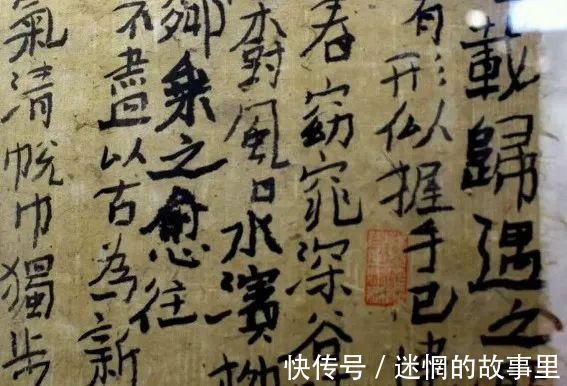 載歸遇之
有形似握手已
春窈窕深谷
樹風日水濱柳
鄰乘之愈往
不盡以古為新
氣清脫巾獨步
快传号 / 迷惘的故事里